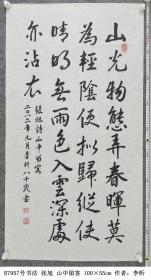 山光物態弄春暉莫
為輕陰便擬歸縱使
晴明無雨色入雲深處
亦沾衣
張旭詩山中留客
二〇一二年九月李昕八十歲書
B7957号书法 张旭 山中留客 100×55cm 作者：李昕